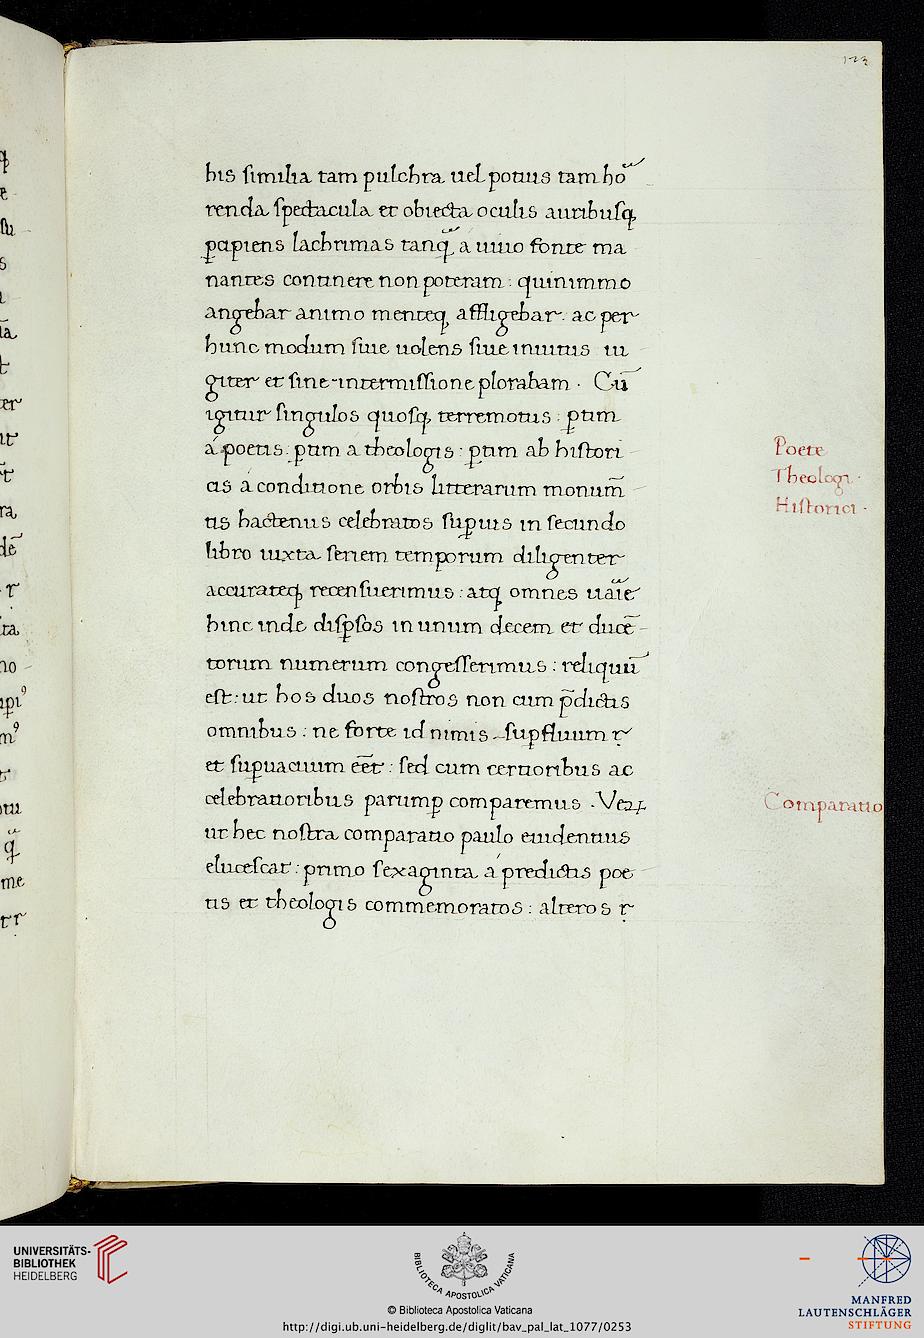 123
his similia tam pulchra uel potius tam hoᷓ
renda spectacula et obiecta oculis auribusꝗ
ꝑcipiens lachrimas tanꝗᷓ a uiuo fonte ma
nantes continere non poteram : quinimmo
angebar animo menteꝗ affligebar . ac per
hunc modum siue uolens siue inuitus iu
giter et sine intermissione plorabam . Cū
igitur singulos quosꝗ terremotus : ꝑtim
á poetis : ꝑtim a theologis : ꝑtim ab histori
cis á conditione orbis litterarum monum̄
tis hactenus celebratos suꝑius in secundo
libro iuxta seriem temporum diligenter
accurateꝗ recensuerimus : atꝗ omnes uarie
hinc inde disꝑsos in unum decem et ducē
torum numerum congesserimus : reliquū
est : ut hos duos nostros non cum p̄dictis
omnibus : ne forte id nimis suꝑfluum ꝛ
et suꝑuacuum eēt : sed cum certioribus ac
celebratioribus parumꝑ comparemus . Veꝝ
ut hec nostra comparatio paulo euidentius
elucescat : primo sexaginta á predictis poe
tis et theologis commemoratos : alteros ꝛ
Poete
Theologi .
Historici .
Comparatio
UNIVERSITÄTS-
BIBLIOTHEK
HEIDELBERG
BIBLIOTECA APOSTOLICA VATICANA
© Biblioteca Apostolica Vaticana
http://digi.ub.uni-heidelberg.de/diglit/bav_pal_lat_1077/0253
MANFRED
LAUTENSCHLÄGER
STIFTUNG